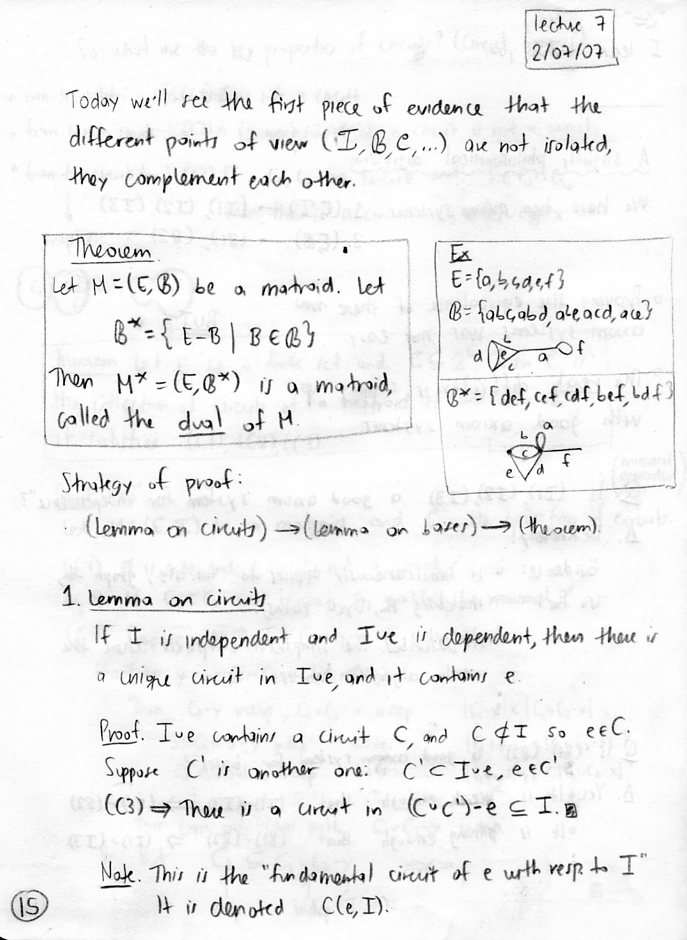 lecture 7
2/07/07
Today we'll see the first piece of evidence that the
different points of view (I, B, C, ...) are not isolated,
they complement each other.
Theorem
Let M=(E, B) be a matroid. Let
B* = { E-B | B ∈ B}
Then M* = (E, B*) is a matroid,
called the dual of M.
Ex
E={a,b,c,d,e,f}
B={abc, abd, abe, acd, ace}
d e b c a f
B* = {def, cef, cdf, bef, bdf}
a
b
c f
e d
Strategy of proof:
(Lemma on circuits) → (lemma on bases) → (theorem).
1. Lemma on circuits
If I is independent and I∪e is dependent, then there is
a unique circuit in I∪e, and it contains e.
Proof. I∪e contains a circuit C, and C ⊄ I so e∈C.
Suppose C' is another one: C' ⊂ I∪e, e∈C'
(C3) ⇒ There is a circuit in (C∪C')-e ⊆ I.
Note. This is the "fundamental circuit of e with resp. to I"
It is denoted C(e, I).
15